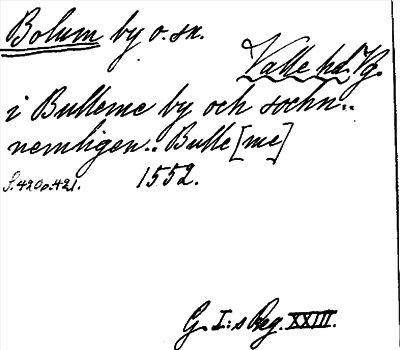 Bolum by o. sn.
Valle hd. Vg.
i Bulleme by och sochn..
nemligen.. Bulle [me]
S. 420 o. 421. 1552.
G. I:s Reg. XXIII.